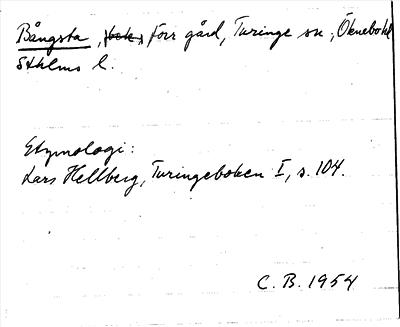 Bångsta, förr gård, Turinge sn, Öknebo hd
Sthlms l.
Etymologi:
Lars Hellberg, Turingeboken I, s. 104.
C. B. 1954